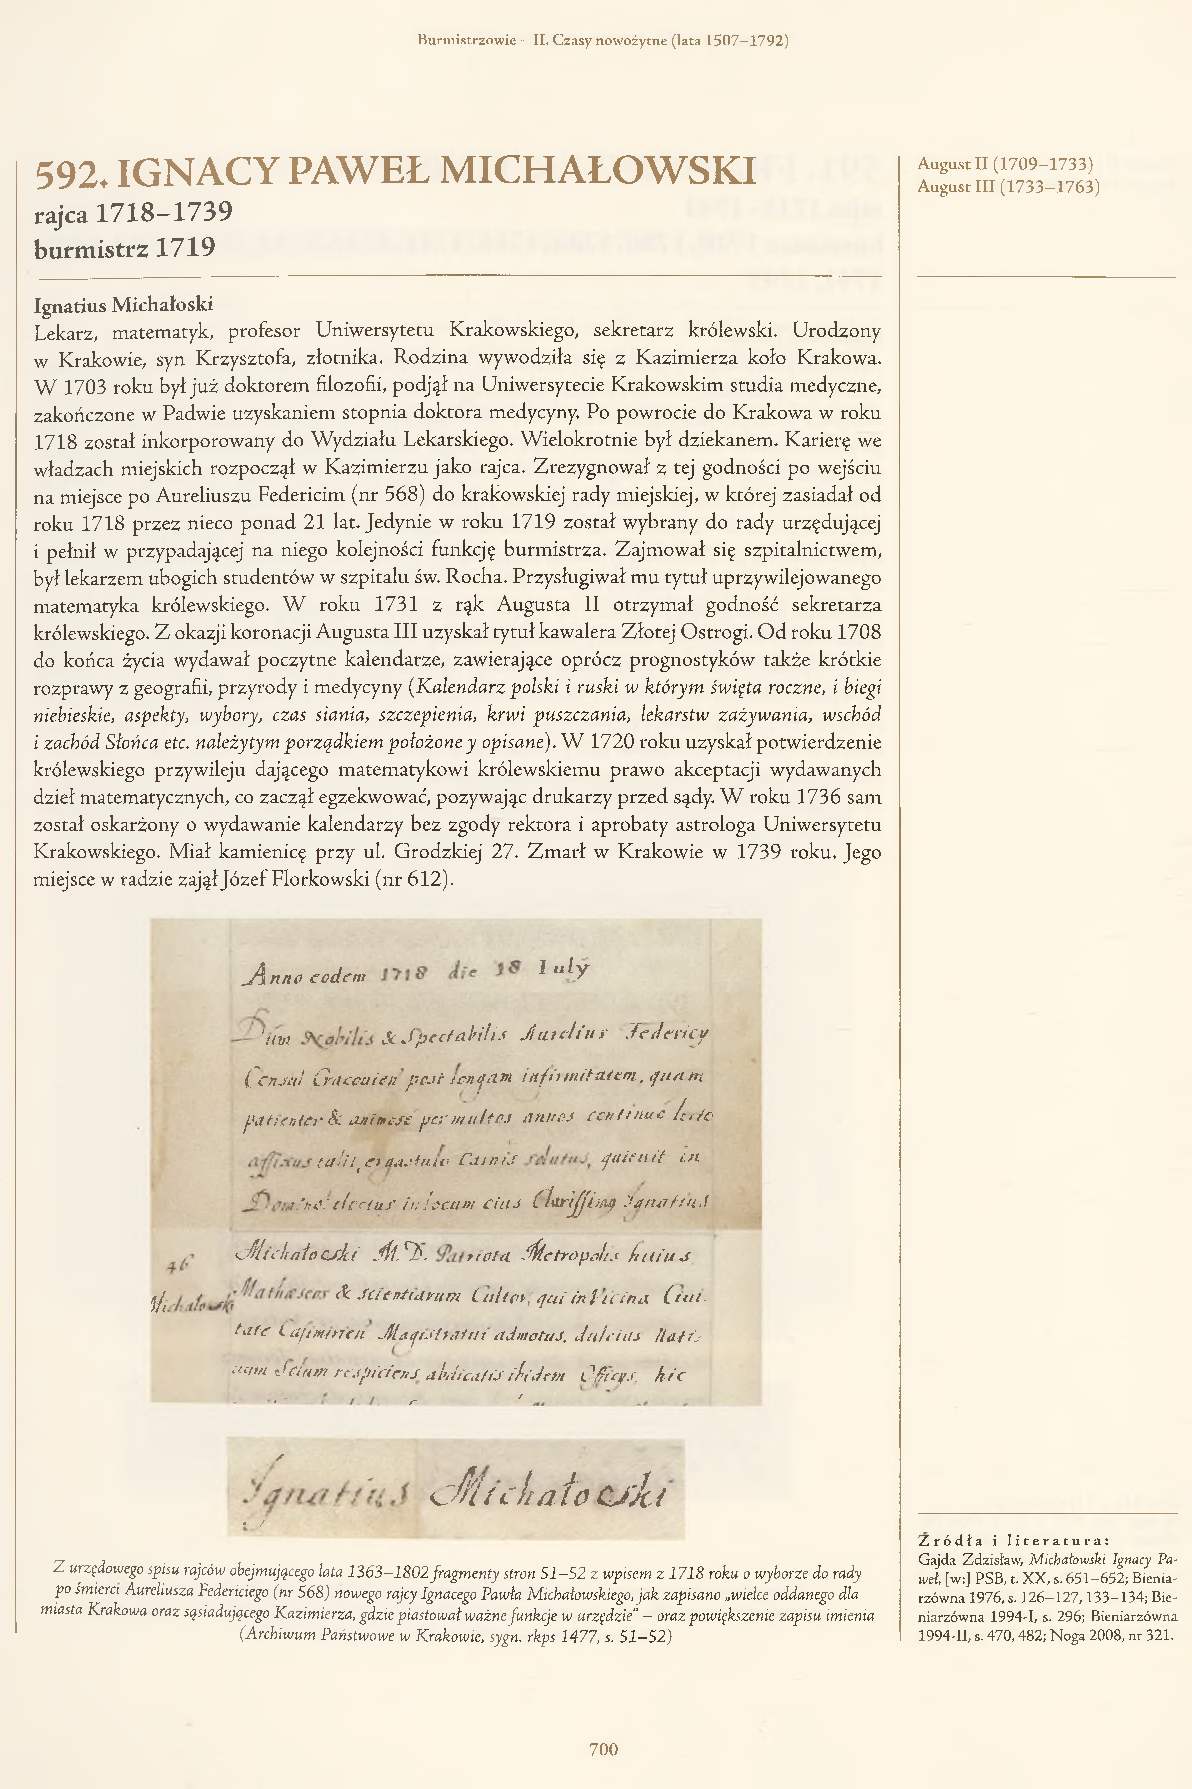 Burmistrzowie - II. Czasy nowożytne (lata 1507–1792)
592. IGNACY PAWEŁ MICHAŁOWSKI
rajca 1718–1739
burmistrz 1719
August II (1709–1733)
August III (1733–1763)
Ignatius Michałoski
Lekarz, matematyk, profesor Uniwersytetu Krakowskiego, sekretarz królewski. Urodzony
w Krakowie, syn Krzysztofa, złotnika. Rodzina wywodziła się z Kazimierza koło Krakowa.
W 1703 roku był już doktorem filozofii, podjął na Uniwersytecie Krakowskim studia medyczne,
zakończone w Padwie uzyskaniem stopnia doktora medycyny. Po powrocie do Krakowa w roku
1718 został inkorporowany do Wydziału Lekarskiego. Wielokrotnie był dziekanem. Karierę we
władzach miejskich rozpoczął w Kazimierzu jako rajca. Zrezygnował z tej godności po wejściu
na miejsce po Aureliuszu Federicim (nr 568) do krakowskiej rady miejskiej, w której zasiadał od
roku 1718 przez nieco ponad 21 lat. Jedynie w roku 1719 został wybrany do rady urzędującej
i pełnił w przypadającej na niego kolejności funkcję burmistrza. Zajmował się szpitalnictwem,
był lekarzem ubogich studentów w szpitalu św. Rocha. Przysługiwał mu tytuł uprzywilejowanego
matematyka królewskiego. W roku 1731 z rąk Augusta II otrzymał godność sekretarza
królewskiego. Z okazji koronacji Augusta III uzyskał tytuł kawalera Złotej Ostrogi. Od roku 1708
do końca życia wydawał poczytne kalendarze, zawierające oprócz prognostyków także krótkie
rozprawy z geografii, przyrody i medycyny (Kalendarz polski i ruski w którym święta roczne, i biegi
niebieskie, aspekty, wybory, czas siania, szczepienia, krwi puszczania, lekarstw zażywania, wschód
i zachód Słońca etc. należytym porządkiem położone y opisane). W 1720 roku uzyskał potwierdzenie
królewskiego przywileju dającego matematykowi królewskiemu prawo akceptacji wydawanych
dzieł matematycznych, co zaczął egzekwować, pozywając drukarzy przed sądy. W roku 1736 sam
został oskarżony o wydawanie kalendarzy bez zgody rektora i aprobaty astrologa Uniwersytetu
Krakowskiego. Miał kamienicę przy ul. Grodzkiej 27. Zmarł w Krakowie w 1739 roku. Jego
miejsce w radzie zajął Józef Florkowski (nr 612).
Anno eodem 1718 die 18 Iuly
Nobilis & Spectabilis Aurelius Federicy
Consul Cracouien post longam infirmitatem, quam
patienter & animose per multos annos continue lecto
affixus tulit, ergastulo Carnis solutus, quieuit in
Domino: electus in locum eius Clarissimq Ignatius
Michałoski M.D. Patriota Metropolis huius
46
Michałowski
Matheseos & scientiarum Cultor, qui in Vicina Ciui-
tate Casimirien Magistratui admotus, dulcius Nati-
uum Solum respiciens, abdicatis ibidem Officys, hic
Ignatius Michałoski
Z urzędowego spisu rajców obejmującego lata 1363–1802 fragmenty stron 51–52 z wpisem z 1718 roku o wyborze do rady
po śmierci Aureliusza Federiciego (nr 568) nowego rajcy Ignacego Pawła Michałowskiego, jak zapisano „wielce oddanego dla
miasta Krakowa oraz sąsiadującego Kazimierza, gdzie piastował ważne funkcje w urzędzie” – oraz powiększenie zapisu imienia
(Archiwum Państwowe w Krakowie, sygn. rkps 1477, s. 51–52)
Źródła i literatura:
Gajda Zdzisław, Michałowski Ignacy Pa-
weł, [w:] PSB, t. XX, s. 651–652; Bienia-
rzówna 1976, s. 126–127, 133–134; Bie-
niarzówna 1994-I, s. 296; Bieniarzówna
1994-II, s. 470, 482; Noga 2008, nr 321.
700